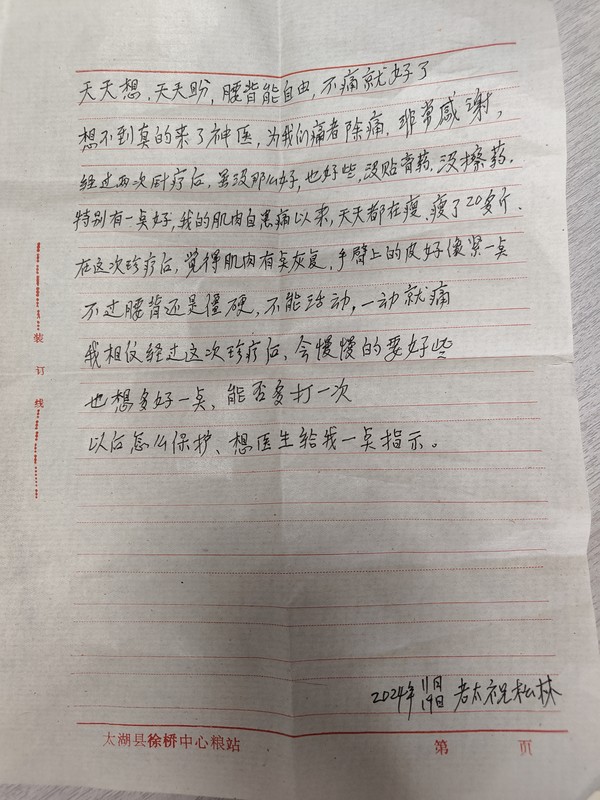 天天想，天天盼，腰背能自由，不痛就好了
想不到真的来了神医，为我们痛者除痛，非常感谢，
经过两次针疗后，虽没那么好，也好些，没贴膏药，没擦药．
特别有一点好，我的肌肉自患痛以来，天天都在瘦，瘦了20多斤．
在这次珍疗后，觉得肌肉有点灰复，手臂上的皮好像紧一点
不过腰背还是僵硬，不能活动，一动就痛
我相仪经过这次珍疗后，会慢慢的要好些
也想多好一点，能否多打一次
以后怎么保护、想医生给我一点指示。
装
订
线
2024年11月19日 老太祝松林
太湖县徐桥中心粮站 第 页